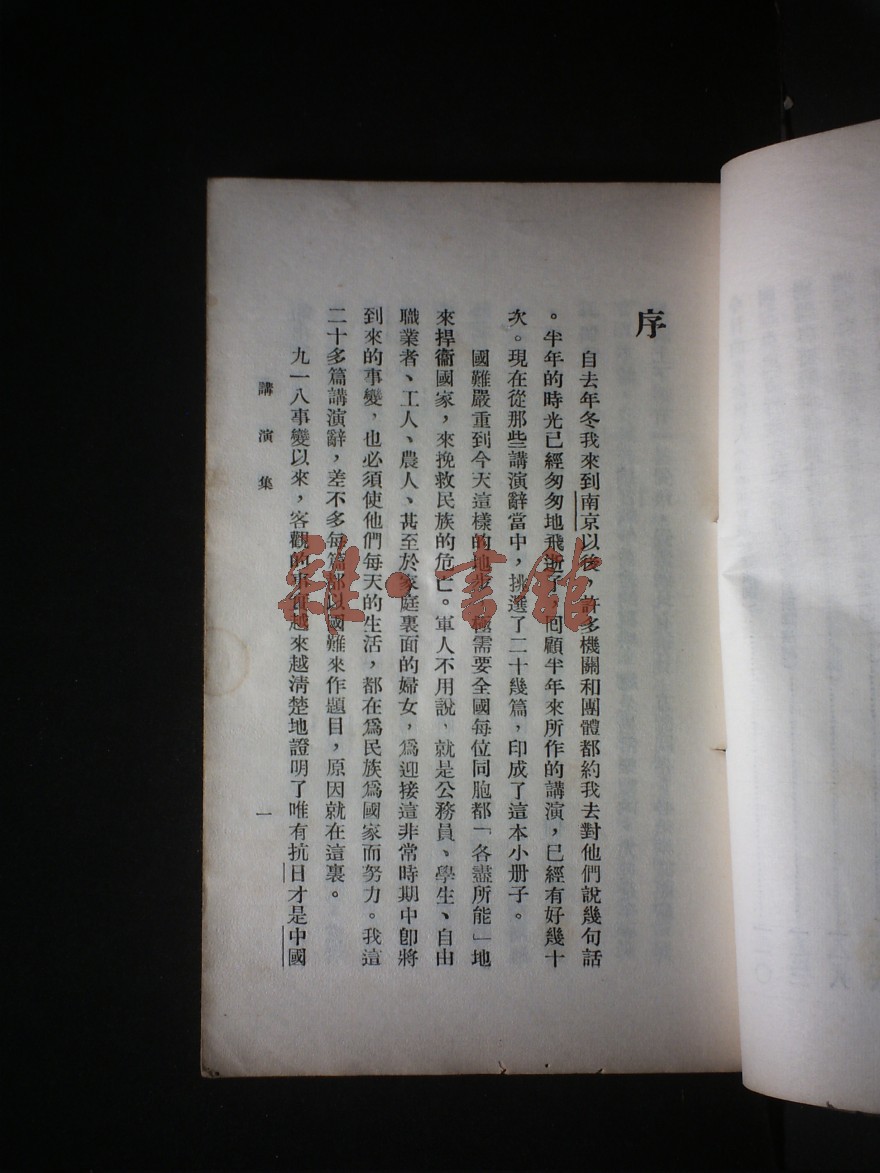 序
自去年冬我來到南京以後，許多機關和團體都約我去對他們說幾句話
。半年的時光已經匆匆地飛逝了，回顧半年來所作的講演，已經有好幾十
次。現在從那些講演辭當中，挑選了二十幾篇，印成了這本小册子。
國難嚴重到今天這樣的地步，極需要全國每位同胞都「各盡所能」地
來捍衞國家，來挽救民族的危亡。軍人不用說，就是公務員、學生、自由
職業者、工人、農人、甚至於家庭裏面的婦女，爲迎接這非常時期中卽將
到來的事變，也必須使他們每天的生活，都在爲民族爲國家而努力。我這
二十多篇講演辭，差不多每篇都以國難來作題目，原因就在這裏。
九一八事變以來，客觀的事實越來越清楚地證明了唯有抗日才是中國
講演集
一
雜·書館